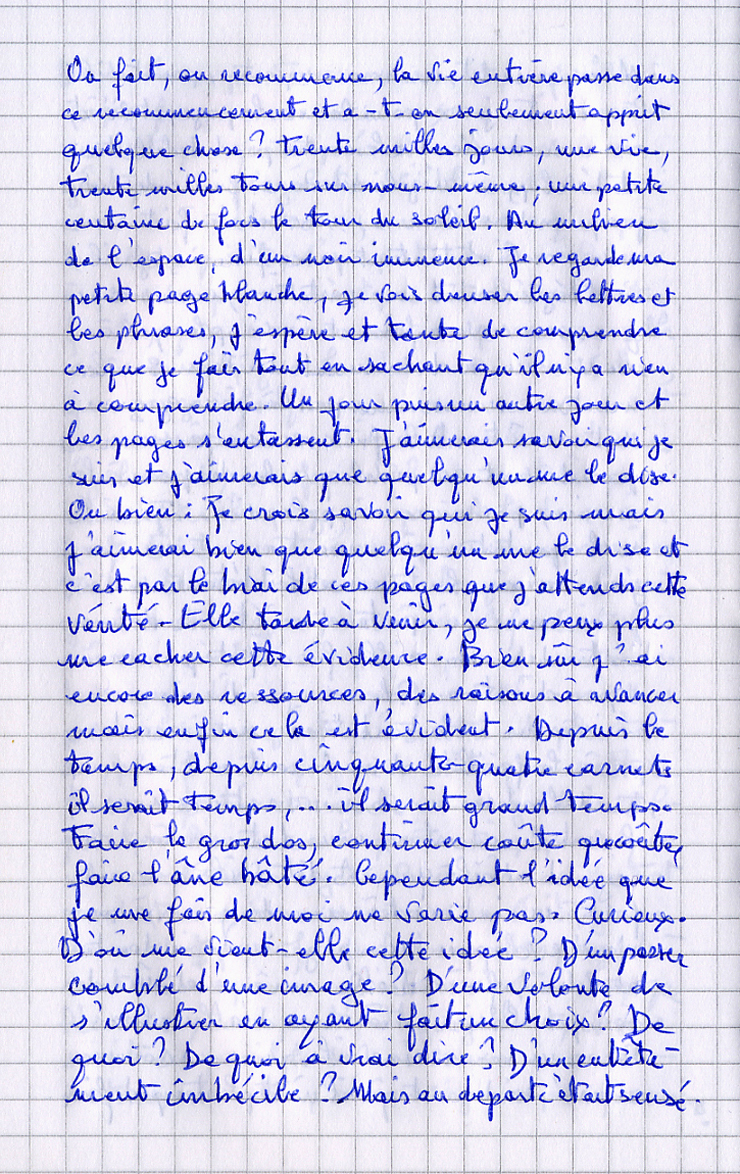 On fait, on recommence, la vie entière passe dans
ce recommencement et a-t-on seulement appris
quelque chose ? trente milles jours, une vie,
trente milles tours sur nous-même, une petite
centaine de fois le tour du soleil. Au milieu
de l'espace, d'un noir immense. Je regarde ma
petite page blanche, je vois danser les lettres et
les phrases, j'espère et tente de comprendre
ce que je fais tout en sachant qu'il n'y a rien
à comprendre. Un jour puis un autre jour et
les pages s'entassent. J'aimerais savoir qui je
suis et j'aimerais que quelqu'un me le dise.
Ou bien : Je crois savoir qui je suis mais
j'aimerai bien que quelqu'un me le dise et
c'est par le biai de ces pages que j'attends cette
vérité - Elle tarde à venir, je ne peux plus
me cacher cette évidence. Bien sûr j'ai
encore des ressources, des raisons à avancer
mais enfin cela est évident. Depuis le
temps, depuis cinquante-quatre carnets
il serait temps, ... il serait grand temps.
Faire le gros dos, continuer coûte que coûte,
faire l'âne bâté. Cependant l'idée que
je me fais de moi ne varie pas. Curieux.
D'où me vient-elle cette idée ? D'un passer
comblé d'une image ? D'une volonté de
s'illustrer en ayant fait un choix ? De
quoi ? De quoi à vrai dire ? D'un entête-
ment imbécile ? Mais au départ c'était sensé.